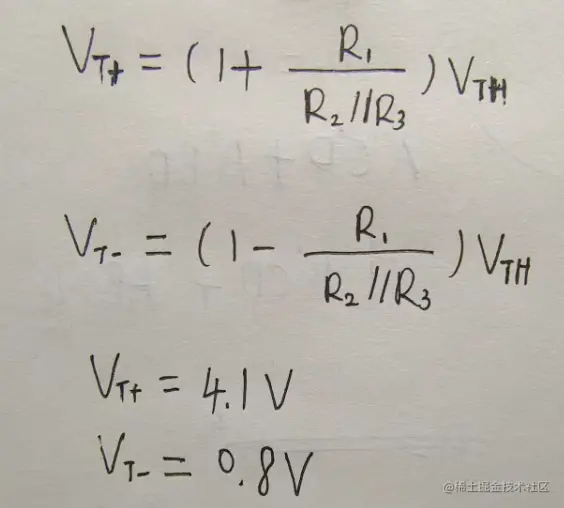 V_{T+} = (1 + \frac{R_1}{R_2//R_3}) V_{TH}
V_{T-} = (1 - \frac{R_1}{R_2//R_3}) V_{TH}
V_{T+} = 4.1V
V_{T-} = 0.8V
@稀土掘金技术社区